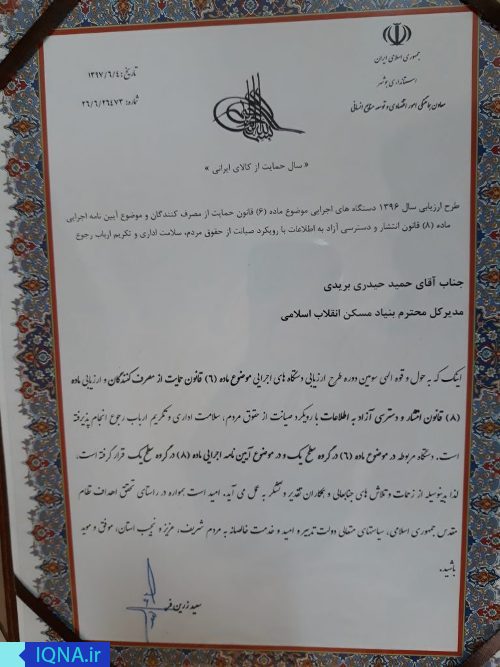 جمهوری اسلامی ایران
استانداری بوشهر
معاون هماهنگی امور اقتصادی و توسعه منابع انسانی
تاریخ: ۱۳۹۷/۶/۴
شماره: ۲۶/۶/۲۶۴۷۳
« سال حمایت از کالای ایرانی »
طرح ارزیابی سال ۱۳۹۶ دستگاه های اجرایی موضوع ماده (۶) قانون حمایت از مصرف کنندگان و موضوع آیین نامه اجرایی
ماده (۸) قانون انتشار و دسترسی آزاد به اطلاعات با رویکرد صیانت از حقوق مردم، سلامت اداری و تکریم ارباب رجوع
جناب آقای حمید حیدری بریدی
مدیرکل محترم بنیاد مسکن انقلاب اسلامی
اینک که به حول و قوه الهی سومین دوره طرح ارزیابی دستگاه های اجرایی موضوع ماده (۶) قانون حمایت از مصرف کنندگان و ارزیابی ماده
(۸) قانون انتشار و دسترسی آزاد به اطلاعات با رویکرد صیانت از حقوق مردم، سلامت اداری و تکریم ارباب رجوع انجام پذیرفته
است. دستگاه مربوطه در موضوع ماده (۶) در گروه سطح یک و در موضوع آیین نامه اجرایی ماده (۸) در گروه سطح یک قرار گرفته است.
لذا بدینوسیله از زحمات و تلاش های جنابعالی و همکاران تقدیر و تشکر به عمل می آید. امید است همواره در راستای تحقق اهداف نظام
مقدس جمهوری اسلامی، سیاستهای متعالی دولت تدبیر و امید و خدمت خالصانه به مردم شریف، عزیز و نجیب استان، موفق و موید
باشید.
سعید زرین فر
IQNA.ir